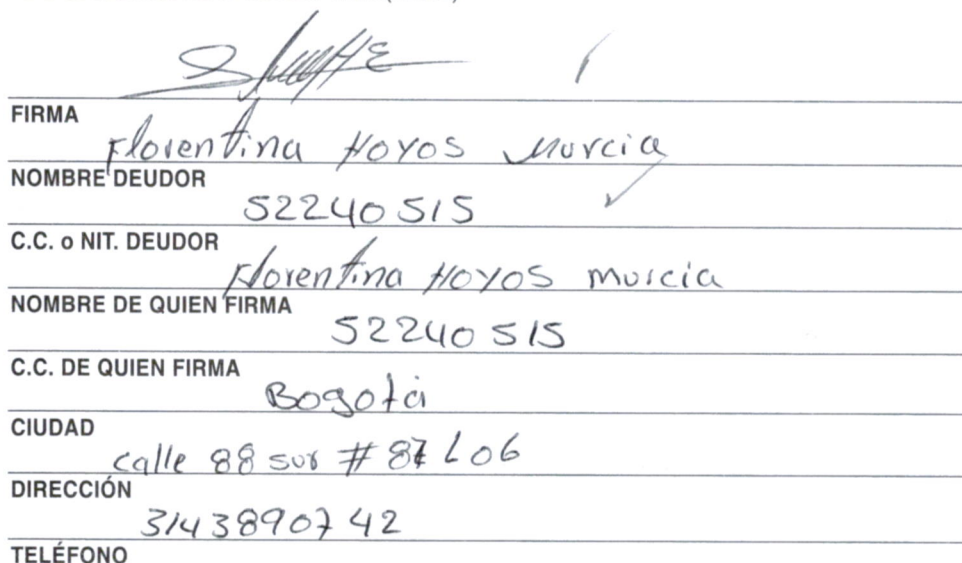 FIRMA
Florentina Hoyos Murcia
NOMBRE DEUDOR
52240515
C.C. o NIT. DEUDOR
Florentina Hoyos murcia
NOMBRE DE QUIEN FIRMA
52240515
C.C. DE QUIEN FIRMA
Bogotá
CIUDAD
calle 88 sur #
DIRECCIÓN
3143890742
TELÉFONO